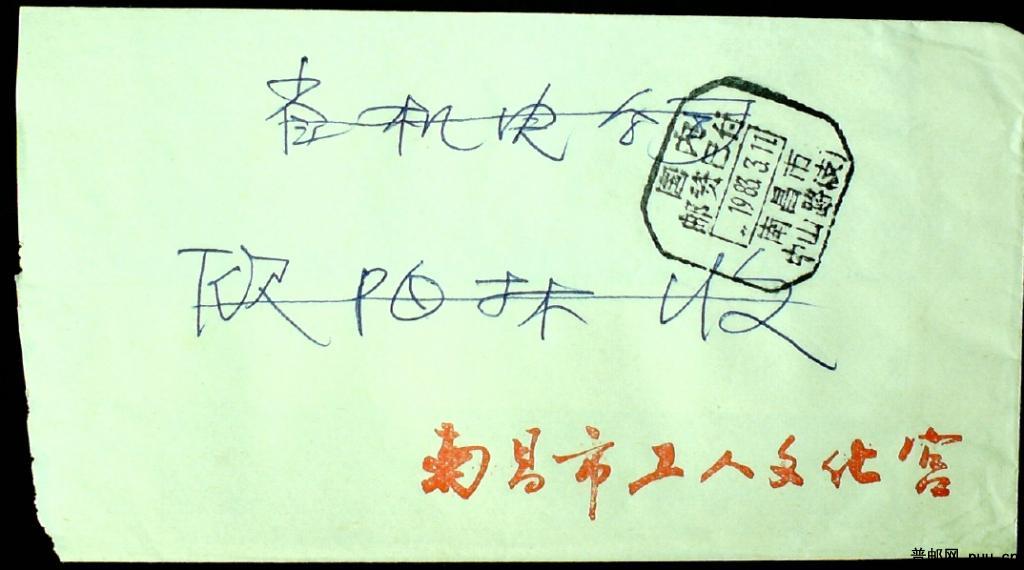 省机电公司
国内
邮资已付
1983.3.11
南昌市
中山路(支)
欧阳林 收
南昌市工人文化宫
普邮网 puu.cn